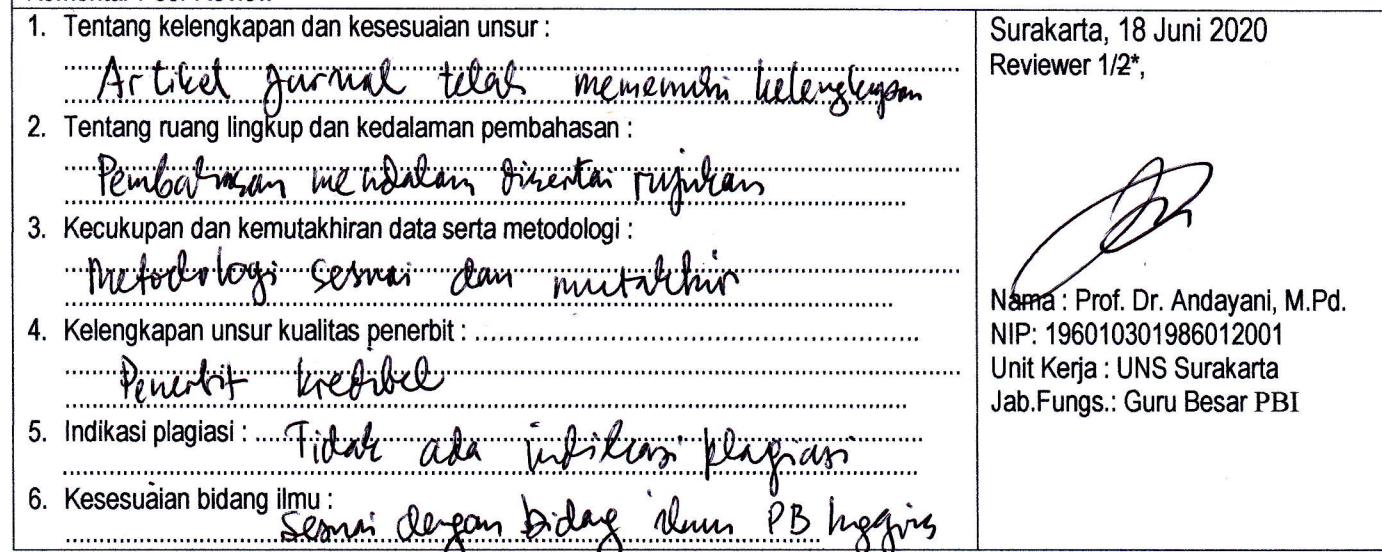 1. Tentang kelengkapan dan kesesuaian unsur :
Artikel jurnal telah memenuhi kelengkapan
2. Tentang ruang lingkup dan kedalaman pembahasan :
Pembahasan mendalam disertai rujukan
3. Kecukupan dan kemutakhiran data serta metodologi :
Metodologi sesuai dan mutakhir
4. Kelengkapan unsur kualitas penerbit :
Penerbit kredibel
5. Indikasi plagiasi : Tidak ada indikasi plagiasi
6. Kesesuaian bidang ilmu :
Sesuai dengan bidang ilmu PB Inggris
Surakarta, 18 Juni 2020
Reviewer 1/2*,
Nama : Prof. Dr. Andayani, M.Pd.
NIP: 196010301986012001
Unit Kerja : UNS Surakarta
Jab.Fungs.: Guru Besar PBI